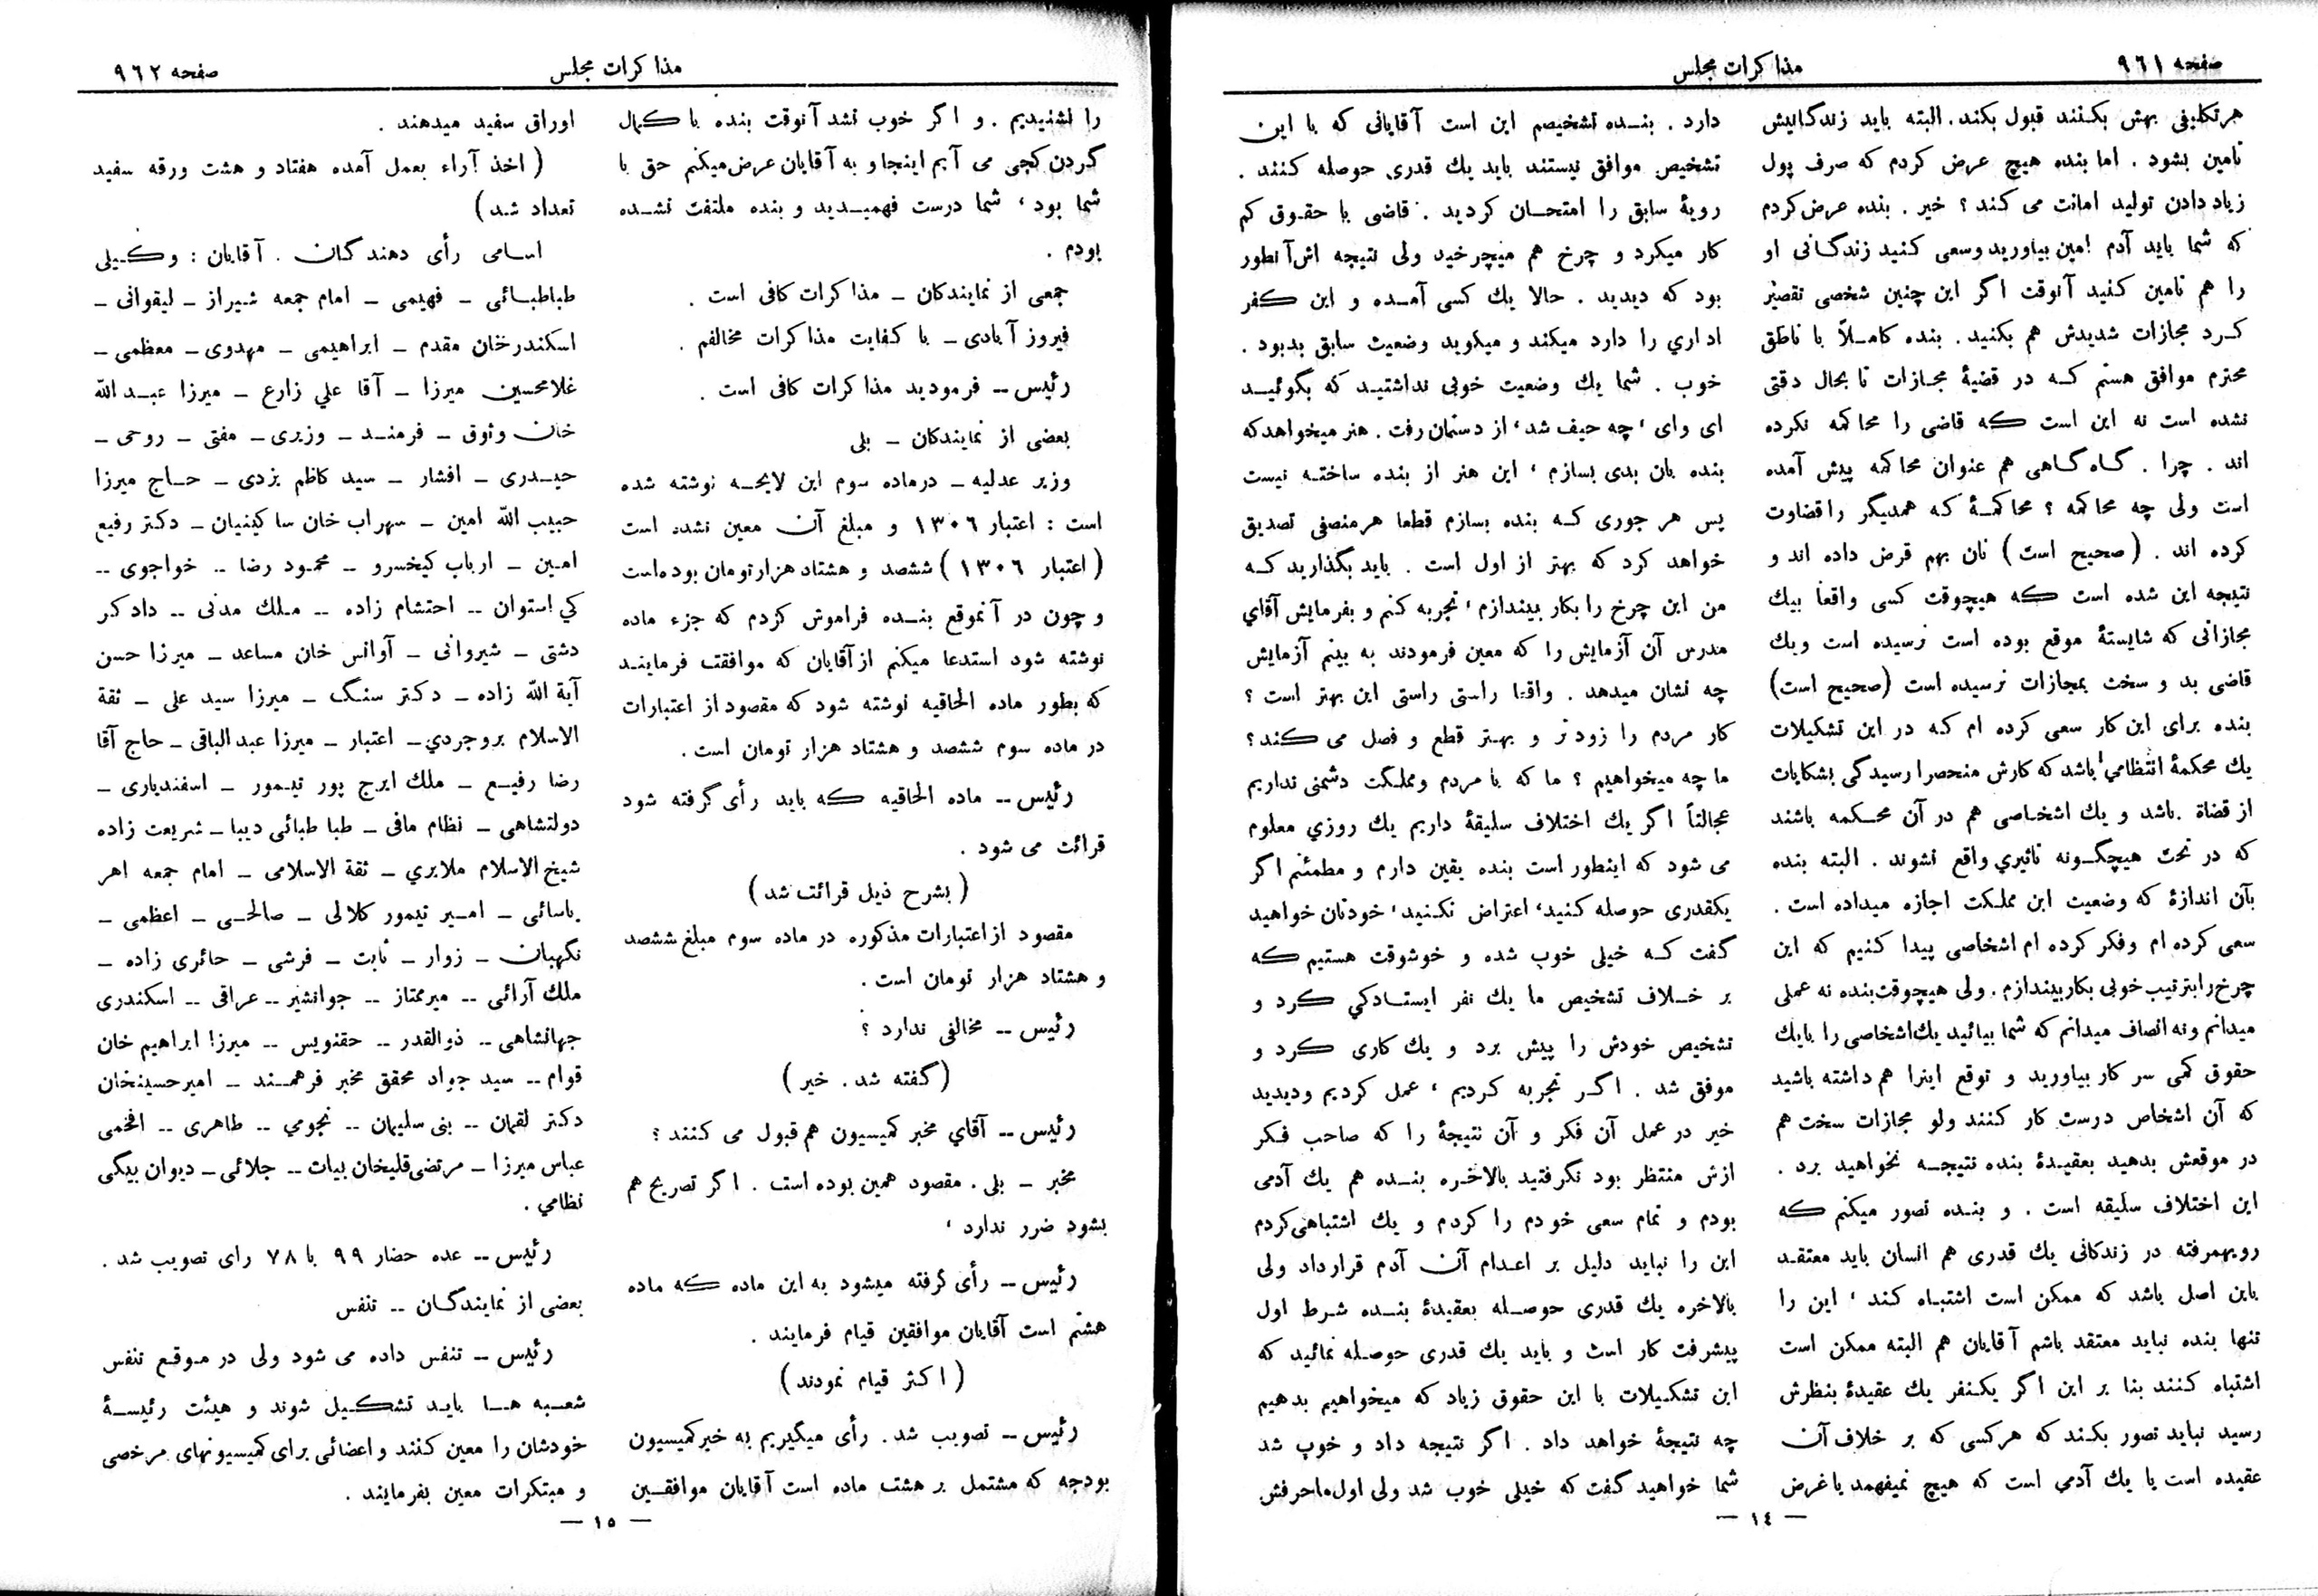 صفحه ٩٦١
مذاکرات مجلس
هرتکلیفی بهش بکنند قبول بکند. البته باید زندگانیش
تامین بشود . اما بنده هیچ عرض کردم که صرف پول
زیاد دادن تولید امانت می کند ؟ خیر . بنده عرض کردم
که شما باید آدم امین بیاورید وسعی کنید زندگانی او
را هم تامین کنید آنوقت اگر این چنین شخصی تقصیر
کرد مجازات شدیدش هم بکنید . بنده کاملاً با ناطق
محترم موافق هستم که در قضیهٔ مجازات تا بحال دقتی
نشده است نه این است که قاضی را محاکمه نکرده
اند . چرا . گاه گاهی هم عنوان محاکمه پیش آمده
است ولی چه محاکمه ؟ محاکمهٔ که همدیگر را قضاوت
کرده اند . (صحیح است) نان بهم قرض داده اند و
نتیجه این شده است که هیچوقت کسی واقعاً بیك
مجازاتی که شایستهٔ موقع بوده است نرسیده است ویك
قاضی بد و سخت بمجازات نرسیده است (صحیح است)
بنده برای این کار سعی کرده ام که در این تشکیلات
یك محکمهٔ انتظامی باشد که کارش منحصرا رسیدگی بشکایات
از قضاة باشد و یك اشخاصی هم در آن محکمه باشند
که در تحت هیچگونه تاثیری واقع نشوند . البته بنده
بآن اندازهٔ که وضعیت این مملکت اجازه میداده است .
سعی کرده ام وفکر کرده ام اشخاصی پیدا کنیم که این
چرخ را بترتیب خوبی بکار بیندازم . ولی هیچوقت بنده نه عملی
میدانم ونه انصاف میدانم که شما بیائید یك اشخاصی را بایك
حقوق کمی سر کار بیاورید و توقع اینرا هم داشته باشید
که آن اشخاص درست کار کنند ولو مجازات سخت هم
در موقعش بدهید بعقیدهٔ بنده نتیجه نخواهید برد .
این اختلاف سلیقه است . و بنده تصور میکنم که
رویهمرفته در زندگانی یك قدری هم انسان باید معتقد
باین اصل باشد که ممکن است اشتباه کند ، این را
تنها بنده نباید معتقد باشم آقایان هم البته ممکن است
اشتباه کنند بنا بر این اگر یکنفر یك عقیدهٔ بنظرش
رسید نباید تصور بکند که هرکسی که بر خلاف آن
عقیده است یا یك آدمی است که هیچ نمیفهمد یا غرض
دارد . بنده تشخیصم این است آقایانی که با این
تشخیص موافق نیستند باید یك قدری حوصله کنند .
رویهٔ سابق را امتحان کردید . قاضی با حقوق کم
کار میکرد و چرخ هم میچرخید ولی نتیجه اش آنطور
بود که دیدید . حالا یك کسی آمده و این کفر
اداری را دارد میکند و میگوید وضعیت سابق بدبود .
خوب . شما یك وضعیت خوبی نداشتید که بگوئید
ای وای ، چه حیف شد ، از دستمان رفت . هنر میخواهد که
بنده بان بدی بسازم ، این هنر از بنده ساخته نیست
پس هر جوری که بنده بسازم قطعا هرمنصفی تصدیق
خواهد کرد که بهتر از اول است . باید بگذارید که
من این چرخ را بکار بیندازم ، تجربه کنم و بفرمایش آقای
مدرس آن آزمایش را که معین فرمودند به بینم آزمایش
چه نشان میدهد . واقعا راستی راستی این بهتر است ؟
کار مردم را زودتر و بهتر قطع و فصل می کند ؟
ما چه میخواهیم ؟ ما که با مردم ومملکت دشمنی نداریم
عجالتاً اگر یك اختلاف سلیقهٔ داریم یك روزی معلوم
می شود که اینطور است بنده یقین دارم و مطمئنم اگر
یکقدری حوصله کنید ، اعتراض نکنید ، خودتان خواهید
گفت که خیلی خوب شده و خوشوقت هستیم که
بر خلاف تشخیص ما یك نفر ایستادگی کرد و
تشخیص خودش را پیش برد و یك کاری کرد و
موفق شد . اگر تجربه کردیم ، عمل کردیم ودیدید
خیر در عمل آن فکر و آن نتیجهٔ را که صاحب فکر
ازش منتظر بود نگرفتید بالاخره بنده هم یك آدمی
بودم و تمام سعی خودم را کردم و یك اشتباهی کردم
این را نباید دلیل بر اعدام آن آدم قرارداد ولی
بالاخره یك قدری حوصله بعقیدهٔ بنده شرط اول
پیشرفت کار است و باید یك قدری حوصله نمائید که
این تشکیلات با این حقوق زیاد که میخواهیم بدهیم
چه نتیجهٔ خواهد داد . اگر نتیجه داد و خوب شد
شما خواهید گفت که خیلی خوب شد ولی اول ماحرفش
— ١٤ —
مذاکرات مجلس
صفحه ٩٦٢
را نشنیدیم . و اگر خوب نشد آنوقت بنده با کمال
گردن کجی می آیم اینجا و به آقایان عرض میکنم حق با
شما بود ، شما درست فهمیدید و بنده ملتفت نشده
بودم .
جمعی از نمایندکان ــ مذاکرات کافی است .
فیروز آبادی ــ با کفایت مذاکرات مخالفم .
رئیس ــ فرمودید مذاکرات کافی است .
بعضی از نمایندکان ــ بلی
وزیر عدلیه ــ درماده سوم این لایحه نوشته شده
است : اعتبار ١٣٠٦ و مبلغ آن معین نشده است
(اعتبار ١٣٠٦) ششصد و هشتاد هزار تومان بوده است
و چون در آنموقع بنده فراموش کردم که جزء ماده
نوشته شود استدعا میکنم از آقایان که موافقت فرمایند
که بطور ماده الحاقیه نوشته شود که مقصود از اعتبارات
در ماده سوم ششصد و هشتاد هزار تومان است .
رئیس ــ ماده الحاقیه که باید رأی گرفته شود
قرائت می شود .
(بشرح ذیل قرائت شد)
مقصود از اعتبارات مذکوره در ماده سوم مبلغ ششصد
و هشتاد هزار تومان است .
رئیس ــ مخالفی ندارد ؟
(گفته شد . خیر)
رئیس ــ آقای مخبر کمیسیون هم قبول می کنند ؟
مخبر ــ بلی . مقصود همین بوده است . اگر تصریح هم
بشود ضرر ندارد ،
رئیس ــ رأی گرفته میشود به این ماده که ماده
هشتم است آقایان موافقین قیام فرمایند .
(اکثر قیام نمودند)
رئیس ــ تصویب شد . رأی میگیریم به خبر کمیسیون
بودجه که مشتمل بر هشت ماده است آقایان موافقین
اوراق سفید میدهند .
(اخذ آراء بعمل آمده هفتاد و هشت ورقه سفید
تعداد شد)
اسامی رأی دهندگان . آقایان : وکیلی
طباطبائی ــ فهیمی ــ امام جمعه شیراز ــ لیقوانی ــ
اسکندرخان مقدم ــ ابراهیمی ــ مهدوی ــ معظمی ــ
غلامحسین میرزا ــ آقا علی زارع ــ میرزا عبدالله
خان وثوق ــ فرمند ــ وزیری ــ مفتی ــ روحی ــ
حیدری ــ افشار ــ سید کاظم یزدی ــ حاج میرزا
حبیب الله امین ــ سهراب خان ساکینیان ــ دکتر رفیع
امین ــ ارباب کیخسرو ــ محمود رضا ــ خواجوی ــ
کی استوان ــ احتشام زاده ــ ملك مدنی ــ دادگر
دشتی ــ شیروانی ــ آوانس خان مساعد ــ میرزا حسن
آیة الله زاده ــ دکتر سنگ ــ میرزا سید علی ــ ثقة
الاسلام بروجردی ــ اعتبار ــ میرزا عبدالباقی ــ حاج آقا
رضا رفیع ــ ملك ایرج پور تیمور ــ اسفندیاری ــ
دولتشاهی ــ نظام مافی ــ طباطبائی دیبا ــ شریعت زاده
شیخ الاسلام ملایری ــ ثقة الاسلامی ــ امام جمعه اهر
یاسائی ــ امیر تیمور کلالی ــ صالحی ــ اعظمی ــ
نگهبان ــ زوار ــ ثابت ــ فرشی ــ حائری زاده ــ
ملك آرائی ــ میرممتاز ــ جوانشیر ــ عراقی ــ اسکندری
جهانشاهی ــ ذوالقدر ــ حقنویس ــ میرزا ابراهیم خان
قوام ــ سید جواد محقق مخبر فرهمند ــ امیرحسینخان
دکتر لقمان ــ بنی سلیمان ــ نجومی ــ طاهری ــ افخمی
عباس میرزا ــ مرتضی قلیخان بیات ــ جلائی ــ دیوان بیگی
نظامی .
رئیس ــ عده حضار ٩٩ با ٧٨ رای تصویب شد .
بعضی از نمایندگان ــ تنفس
رئیس ــ تنفس داده می شود ولی در موقع تنفس
شعبه ها باید تشکیل شوند و هیئت رئیسهٔ
خودشان را معین کنند و اعضائی برای کمیسیونهای مرخصی
و مبتکرات معین بفرمایند .
— ١٥ —